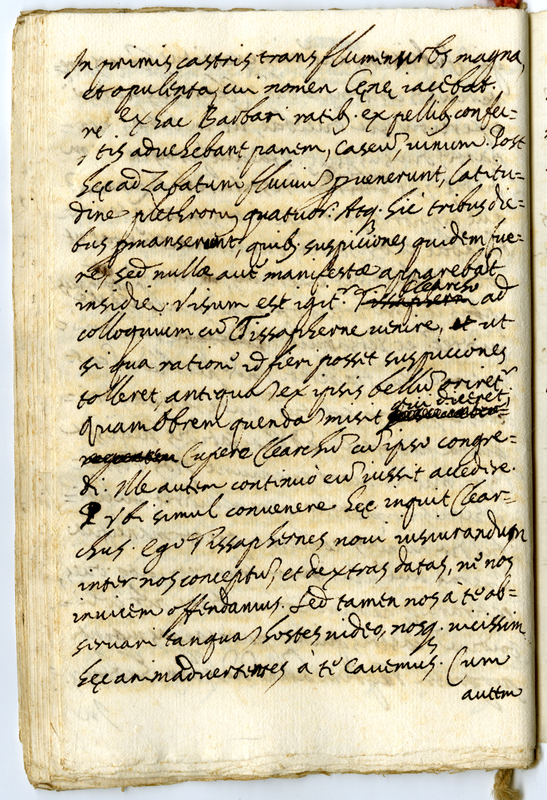 In primis castris trans flumen urbs magna,
et opulenta, cui nomen Cęnę iacebat.
ex hac Barbari ratib. ex pellib. confec=
tis advehebant panem, caseũ, vinum. Post
hęc ad Zabatum fluviũ pvenerunt, latitu=
dine plethrorũ quatuor. Atq. hic tribus die=
bus pmanserunt, quib. suspiciones quidem fue=
re, sed nullæ aut manifestæ apparebãt
insidię. Visum est igit.r Clearcho ad
colloquium cũ Tissapherne venire, et ut
si qua rationẽ id fieri possit suspicciones
tolleret antiquã ex ipsis bellũ oriret.r
quamobrem quendã misit qui diceret,
Cupere Clearchũ cũ ipso congre=
di. Ille autem continuò eũ iussit accedere.
Vbi simul convenere hęc inquit Clear=
chus. Ego Tissaphernes novi iusiurandum
inter nos conceptũ, et dextras datas, nè nos
invicem offendamus. Sed tamen nos à te ob=
servari tanquã hostes video, nosq. vicissim
hęc animadvertentes à te cavemus. Cum
autem